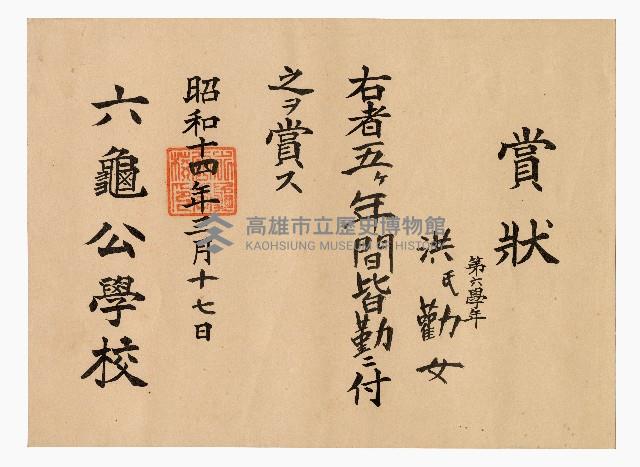 賞狀
第六學年
洪氏勸女
右者五ヶ年間皆勤ニ付
之ヲ賞ス
昭和十四年三月十七日
六龜公學校
高雄市立歷史博物館
KAOHSIUNG MUSEUM OF HISTORY